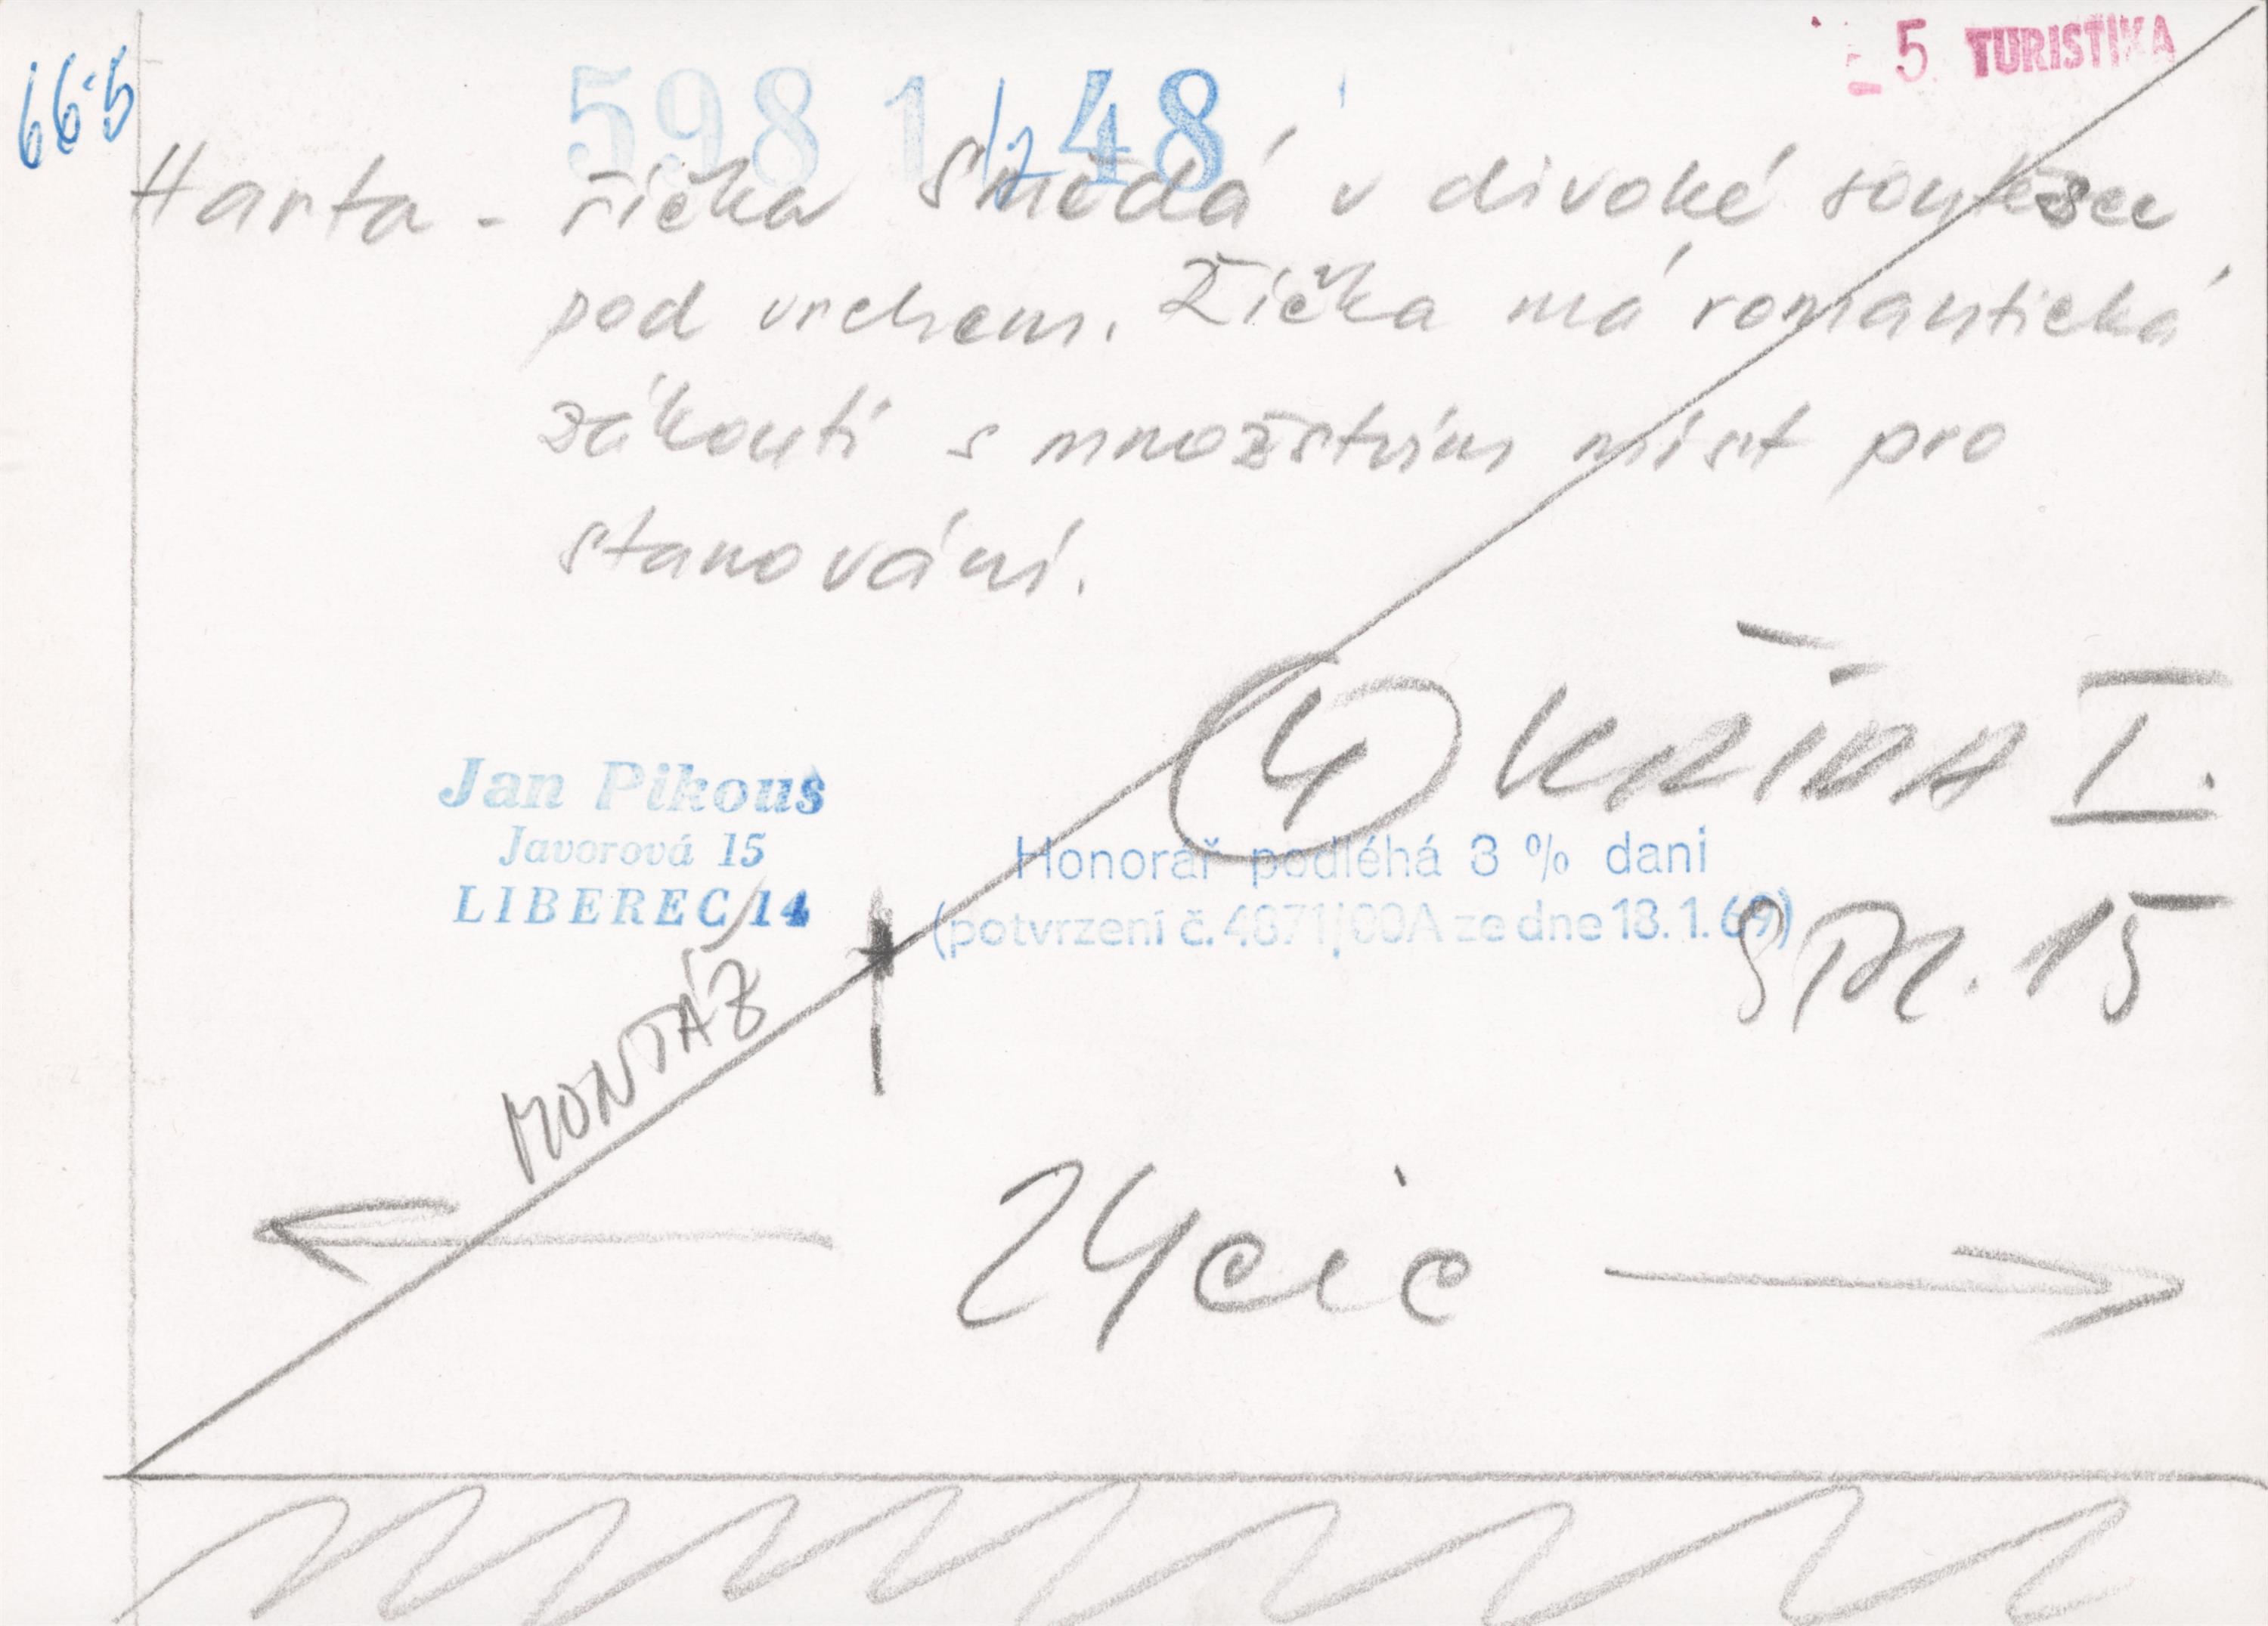 66-5
5 TURISTIKA
598 1/2 48
Harta - říčka Smědá v divoké soutěsce
pod vrchem. Říčka má romantická
zákoutí s množstvím míst pro
stanování.
4 KŘÍDA I.
Jan Pikous
Javorová 15
LIBEREC 14
Honorář podléhá 3 % dani
(potvrzení č. 4871/00A ze dne 13. 1. 69)
STR. 15
MONTÁŽ
24cic